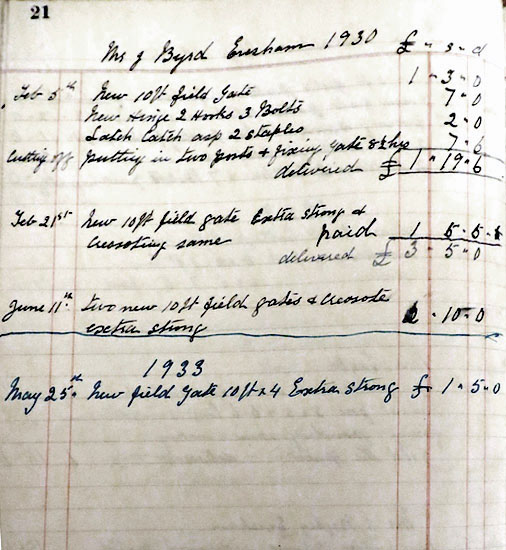 21
Mr J Byrd Evesham 1930 £ - s - d
Feb 5th New 10ft field Gate 1 - 3 - 0
New Hinge 2 Hooks 3 Bolts 7 - 0
Latch Catch 2 staples 2 - 0
Cutting off putting in two posts + fixing gate 8½ hrs 7 - 6
delivered £ 1 - 19 - 6
Feb 21st New 10ft field gate Extra strong &
Creosoting same paid 1 5 - 5 -
delivered £ 3 - 5 - 0
June 11th two new 10ft field gates & Creosote
extra strong 2 - 10 - 0
1933
May 25th New field Gate 10ft x 4 Extra strong £ 1 - 5 - 0